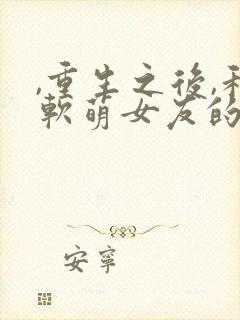 ,重生之後,和
軟萌女友的
安寧